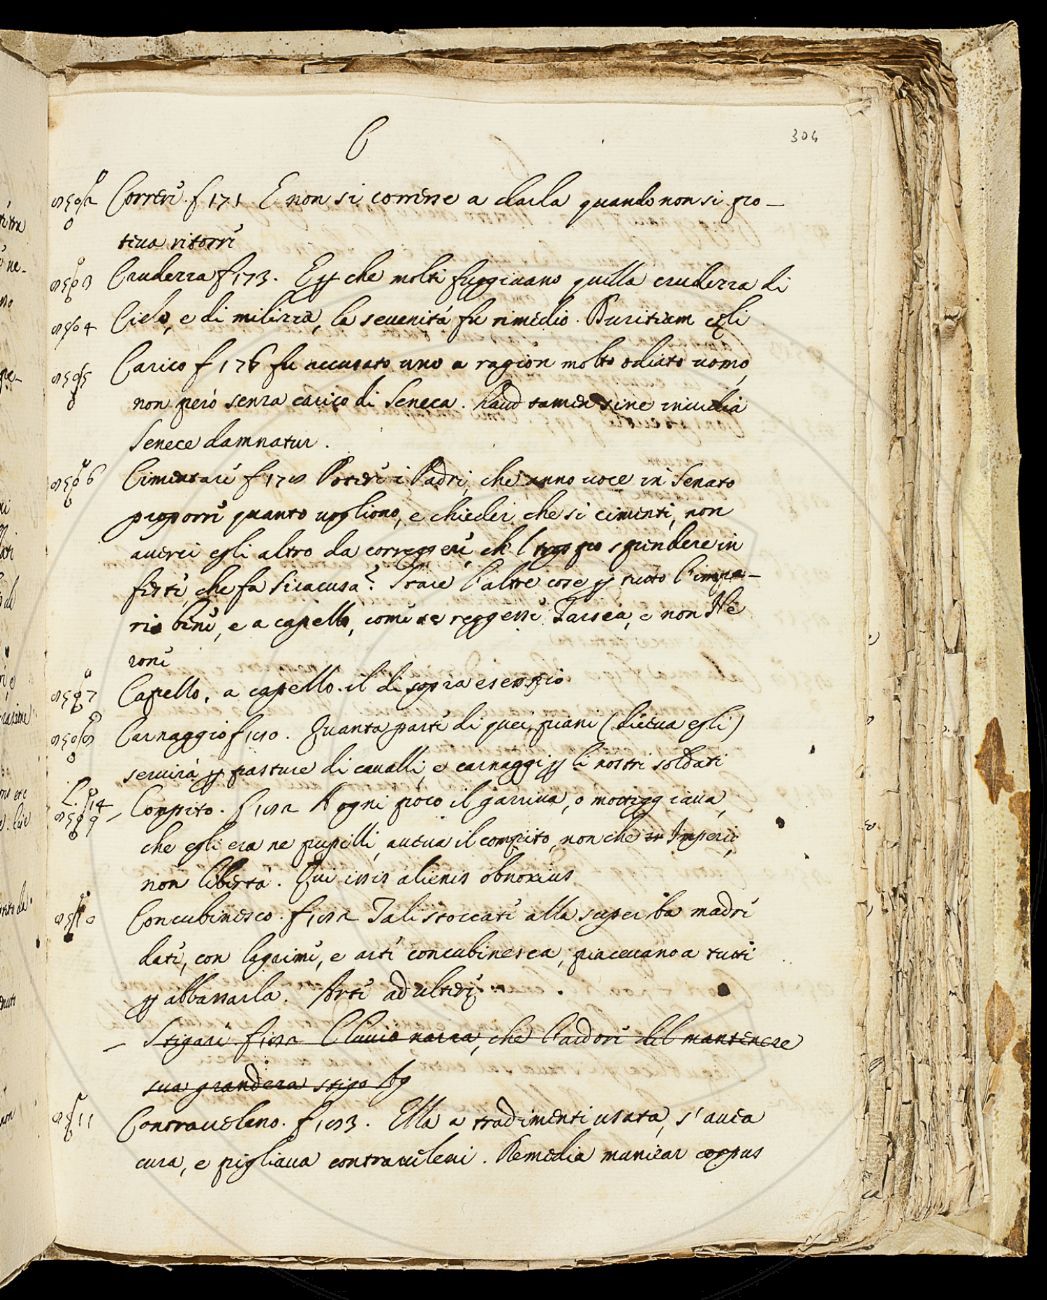 C
304
Correre. f 171 E non si correrre a darla quando non si po-
teva ritorre
Crudezza f 173. E che molti fuggivano quella crudezza di
Cielo, e di milizia, la severità fu rimedio. Duritiam egli
Carico f 176 fu accusato uno a ragion molto odiato uomo,
non però senza carico di Seneca. haud tamen sine invidia
Senece damnatur.
Cimentare f 178 Potere i Padri, che anno voce in Senato
proporre quanto vogliono, e chieder che si cimenti, non
averci egli altro da correggere, ch'l troppo spendere in
feste che fa Siracusa? Stare l'altre cose tutto l'impe-
rio bene, e a capello, come se reggesse Tarsea, e non Ne
rone
Capello, a capello. il di sopra esempio
Carnaggio f 180. Quanta parte di quei piani (diceva egli)
servirà pasture di cavalli, e carnaggi li nostri soldati
Compito. f 182 A ogni poco il garriva, o motteggiava,
che egli era ne pupilli, aveva il compito, non che Imperio,
non libertà. Qui iussis alienis obnoxius
Concubinesco. f 182 Tali stoccate alla superba madre
date, con lagrime, e arti concubinesca, piacevano a tutti
abbassarla. Arte adulterę
Stigare f 182 Cluvio narra, che l'ardore del mantenere
sua grandezza stigò Ag
Contraveleno. f 183. Ella a tradimenti usata, s'avea
cura, e pigliava contraveleni. Remedia munierat corpus